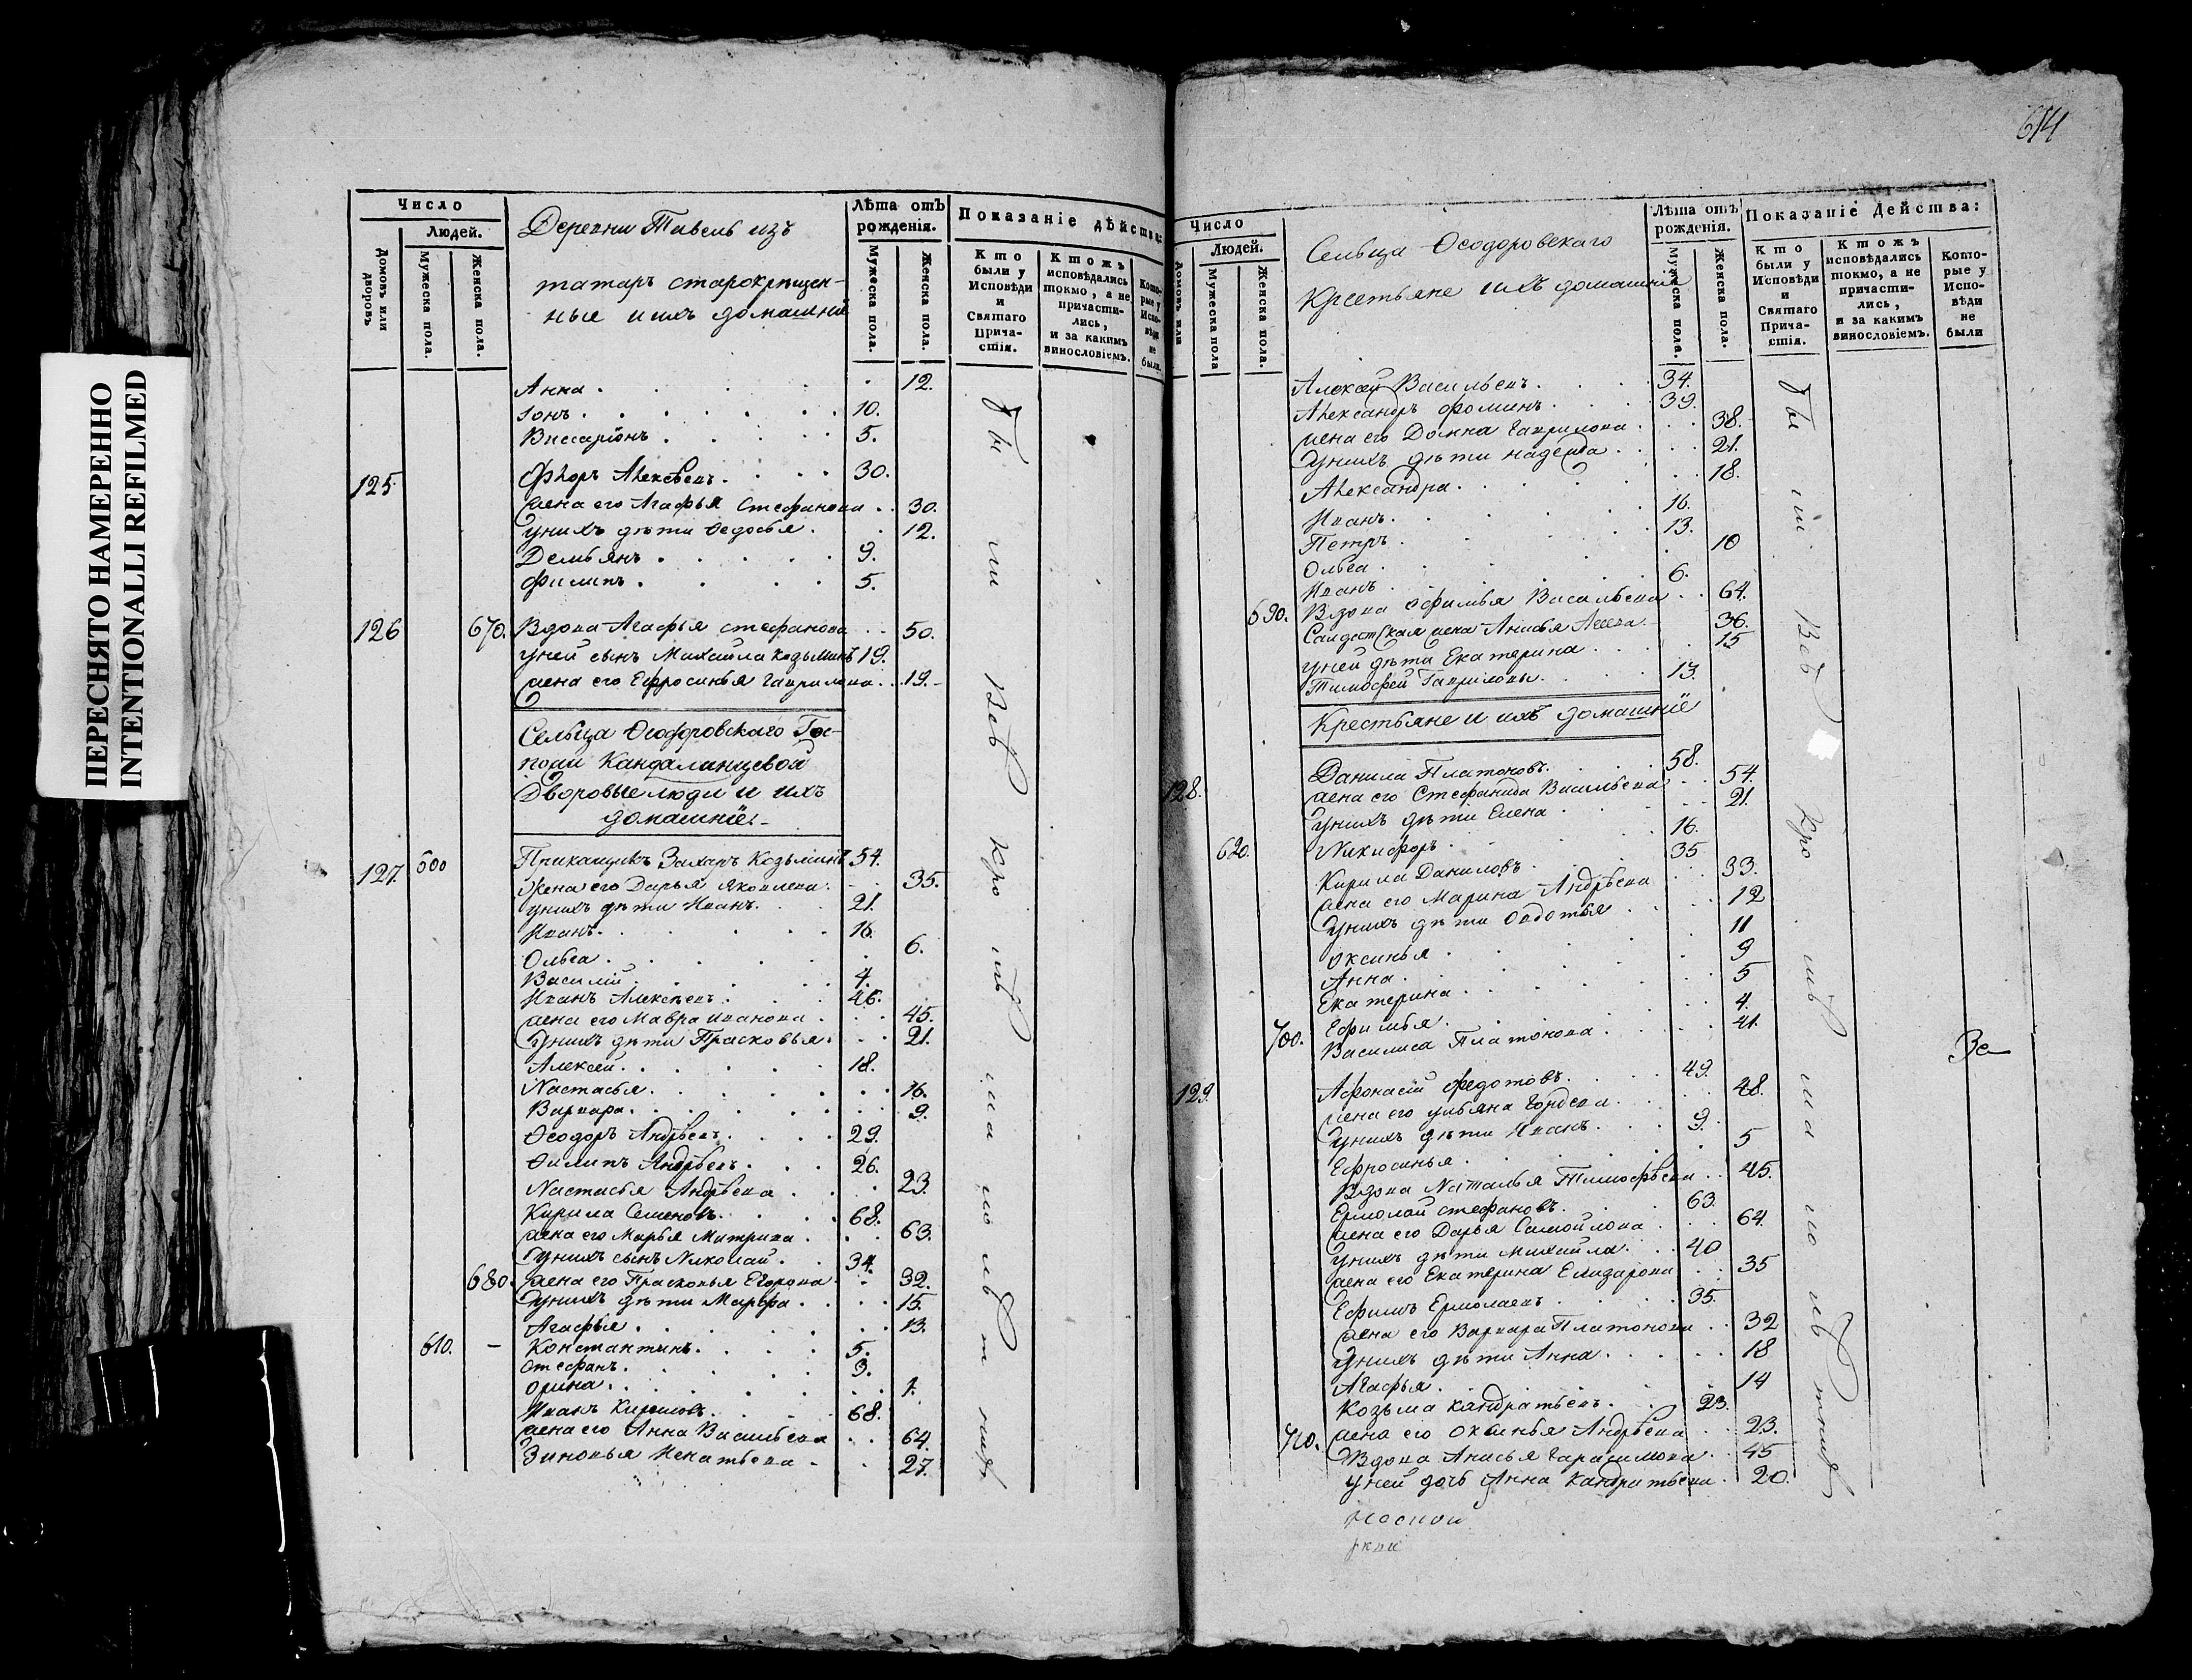 ПЕРЕСНЯТО НАМЕРЕННО
INTENTIONALLI REFILMED
Число
Людей.
Домовъ или дворовъ
Мужеска пола.
Женска пола.
Деревни Тавель изъ
татаръ старокрещен-
ные и ихъ домашнiе
Лѣта отъ рожденiя.
Мужеска пола.
Женска пола.
Показанiе дѣйства:
Кто были у Исповѣди и Святаго Причастiя.
Ктожъ исповѣдались токмо, а не причастились, и за какимъ винословiемъ.
Которые у Исповѣди не были.
Анна . 12.
Iонъ . 10.
Виссарiонъ . 5.
125. Флоръ Алексѣевъ . 30.
жена его Агафья Стефанова . 30.
у нихъ дѣти Ѳедосья . 12.
Демьянъ . 9.
Филипъ . 5.
126 670. Вдова Агафья стефанова . 50.
у ней сынъ Михайла Козьминъ 19.
жена его Ефросинья Гаврилова . 19.
Сельца Ѳеодоровскаго Гос-
пожи Кандалинцевой
Дворовые люди и ихъ
домашнiе.
127. 600 Прикащикъ Захаръ Козьминъ 54.
Жена его Дарья Яковлева . 35.
у нихъ дѣти Иванъ . 21.
Иванъ . 16.
Ольга . 6.
Василiй . 4.
Иванъ Алексѣевъ . 46.
жена его Мавра Иванова . 45.
у нихъ дѣти Прасковья . 21.
Алексѣй . 18.
Настасья . 16.
Варвара . 9.
Ѳеодоръ Андрѣевъ . 29.
Ѳилипъ Андрѣевъ . 26.
Настасья Андрѣева . 23.
Кирила Семеновъ . 68.
жена его Марья Митрива . 63.
у нихъ сынъ Николай . 34.
680. жена его Прасковья Егорова . 32.
у нихъ дѣти Марфа . 15.
Агафья . 13.
610. – Константинъ . 5.
Стефанъ . 3.
Орина . 1.
Иванъ Кириловъ . 68.
жена его Анна Васильева . 64.
Зиновья Игнатьева . 27.
бы ли всѣ кро мѣ ма ло лѣ тнихъ
614
Число
Людей.
Домовъ или
Мужеска пола
Женска пола.
Сельца Ѳеодоровскаго
Крестьяне и ихъ домашнiе
Лѣта отъ рожденiя.
Мужеска пола.
Женска пола.
Показанiе Действа:
Кто были у Исповѣди и Святаго Причастiя.
Ктожъ исповѣдались токмо, а не причастились, и за какимъ винословiемъ.
Которые у Исповѣди не были
Алексѣй Васильевъ . 34.
Александръ Фоминъ . 39.
жена его Домна Гаврилова . 38.
у нихъ дѣти Надежда . 21.
Александра . 18.
Иванъ . 16.
Петръ . 13.
Ольга . 10
Иванъ . 6.
690. Вдова Ефимья Васильева . 64.
Салдатская жена Анисья . 36.
у ней дѣти Екатерина . 15
Тимофей Гавриловы . 13.
Крестьяне и ихъ домашнiе
128. Данила Платоновъ . 58.
жена его Стефанида Васильева . 54.
у нихъ дѣти Елена . 21.
620. Никифоръ . 16.
Кирила Даниловъ . 35
жена его Марина Андрѣева . 33.
у нихъ дѣти Овдотья . 12
Оксинья . 11
Анна . 9
Екатерина . 5
Ефимья . 4.
700. Василиса Платонова . 41.
129. Афонасiй Федотовъ . 49.
жена его Ульяна Гордѣева . 48.
у нихъ дѣти Иванъ . 9.
Ефросинья . 5
Вдова Наталья Тимофѣева . 45.
Ермолай стефановъ . 63.
жена его Дарья Самойлова . 64.
у нихъ дѣти Михайла . 40
жена его Екатерина Елизарова . 35
Ефимъ Ермолаевъ . 35.
жена его Варвара Платонова . 32
у нихъ дѣти Анна . 18
Агафья . 14
Козьма Кандратьевъ . 23.
710. жена его Оксинья Андрѣева . 23.
Вдова Анисья Гарасимова . 45
у ней дочь Анна Кандратьева . 20.
бы ли всѣ кро мѣ ма ло лѣ тнихъ
За